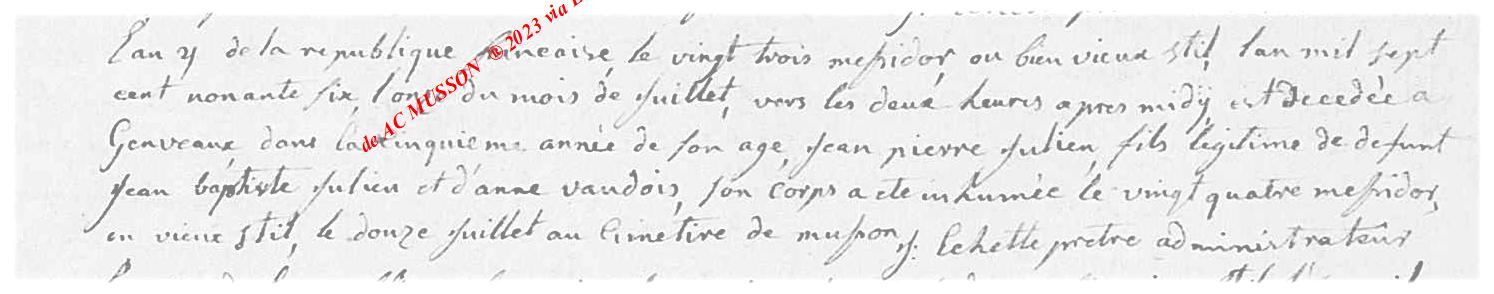 Lan 4 de la republique francaise, le vingt trois messidor, ou bien vieux stil, lan mil sept
cent nonante six, l'onze du mois de juillet, vers les deux heures apres midy, est decedée a
Genveaux, dans la cinquieme année de son age, jean pierre julien, fils legitime de defunt
jean baptiste julien et d'anne vaudois, son corps a ete inhumée le vingt quatre messidor,
en vieux stil, le douze juillet au cimetire de musson j. Lehette pretre administrateur
de AC MUSSON ® 2023 via